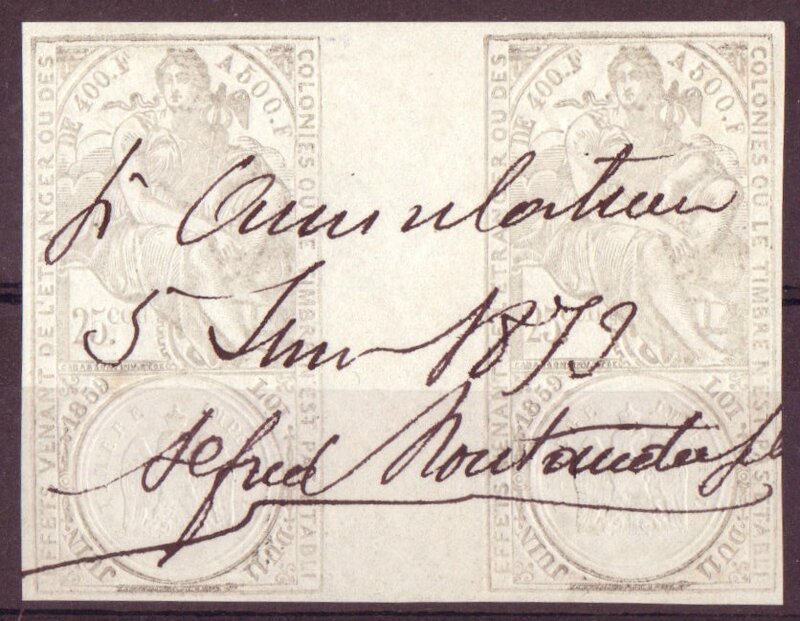 EFFETS VENANT DE L'ETRANGER OU DES
COLONIES OU LE TIMBRE N'EST PAS ETABLI
DE 400.F A 500.F
25 C
1859 LOI
JUIN DU 11
EFFETS VENANT DE L'ETRANGER OU DES
COLONIES OU LE TIMBRE N'EST PAS ETABLI
DE 400.F A 500.F
25
1859 LOI
JUIN DU 11
pr Annulation
5 Juin 1879
Alfred